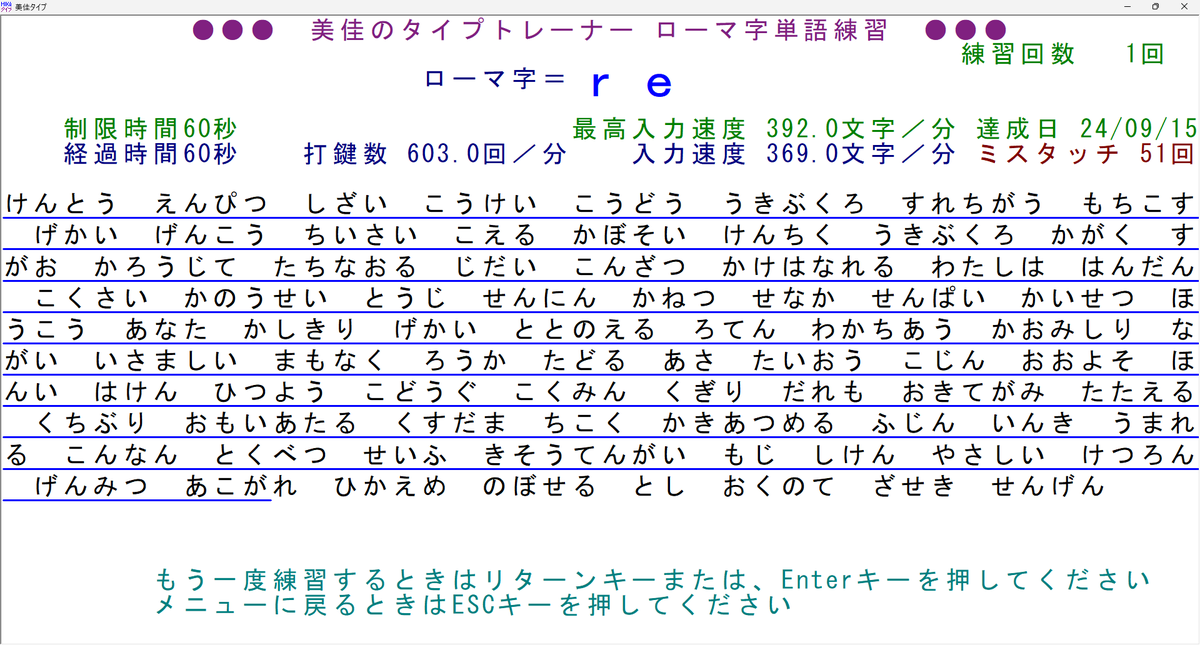 美佳タイプ
●●● 美佳のタイプトレーナー ローマ字単語練習 ●●●
練習回数 1回
ローマ字= re
制限時間60秒 最高入力速度 392.0文字/分 達成日 24/09/15
経過時間60秒 打鍵数 603.0回/分 入力速度 369.0文字/分 ミスタッチ 51回
けんとう えんぴつ しざい こうけい こうどう うきぶくろ すれちがう もちこす
げかい げんこう ちいさい こえる かぼそい けんちく うきぶくろ かがく す
がお かろうじて たちなおる じだい こんざつ かけはなれる わたしは はんだん
こくさい かのうせい とうじ せんにん かねつ せなか せんぱい かいせつ ほ
うこう あなた かしきり げかい ととのえる ろてん わかちあう かおみしり な
がい いさましい まもなく ろうか たどる あさ たいおう こじん おおよそ ほ
んい はけん ひつよう こどうぐ こくみん くぎり だれも おきてがみ たたえる
くちぶり おもいあたる くすだま ちこく かきあつめる ふじん いんき うまれ
る こんなん とくべつ せいふ きそうてんがい もじ しけん やさしい けつろん
げんみつ あこがれ ひかえめ のぼせる とし おくのて ざせき せんげん
もう一度練習するときはリターンキーまたは、Enterキーを押してください
メニューに戻るときはESCキーを押してください